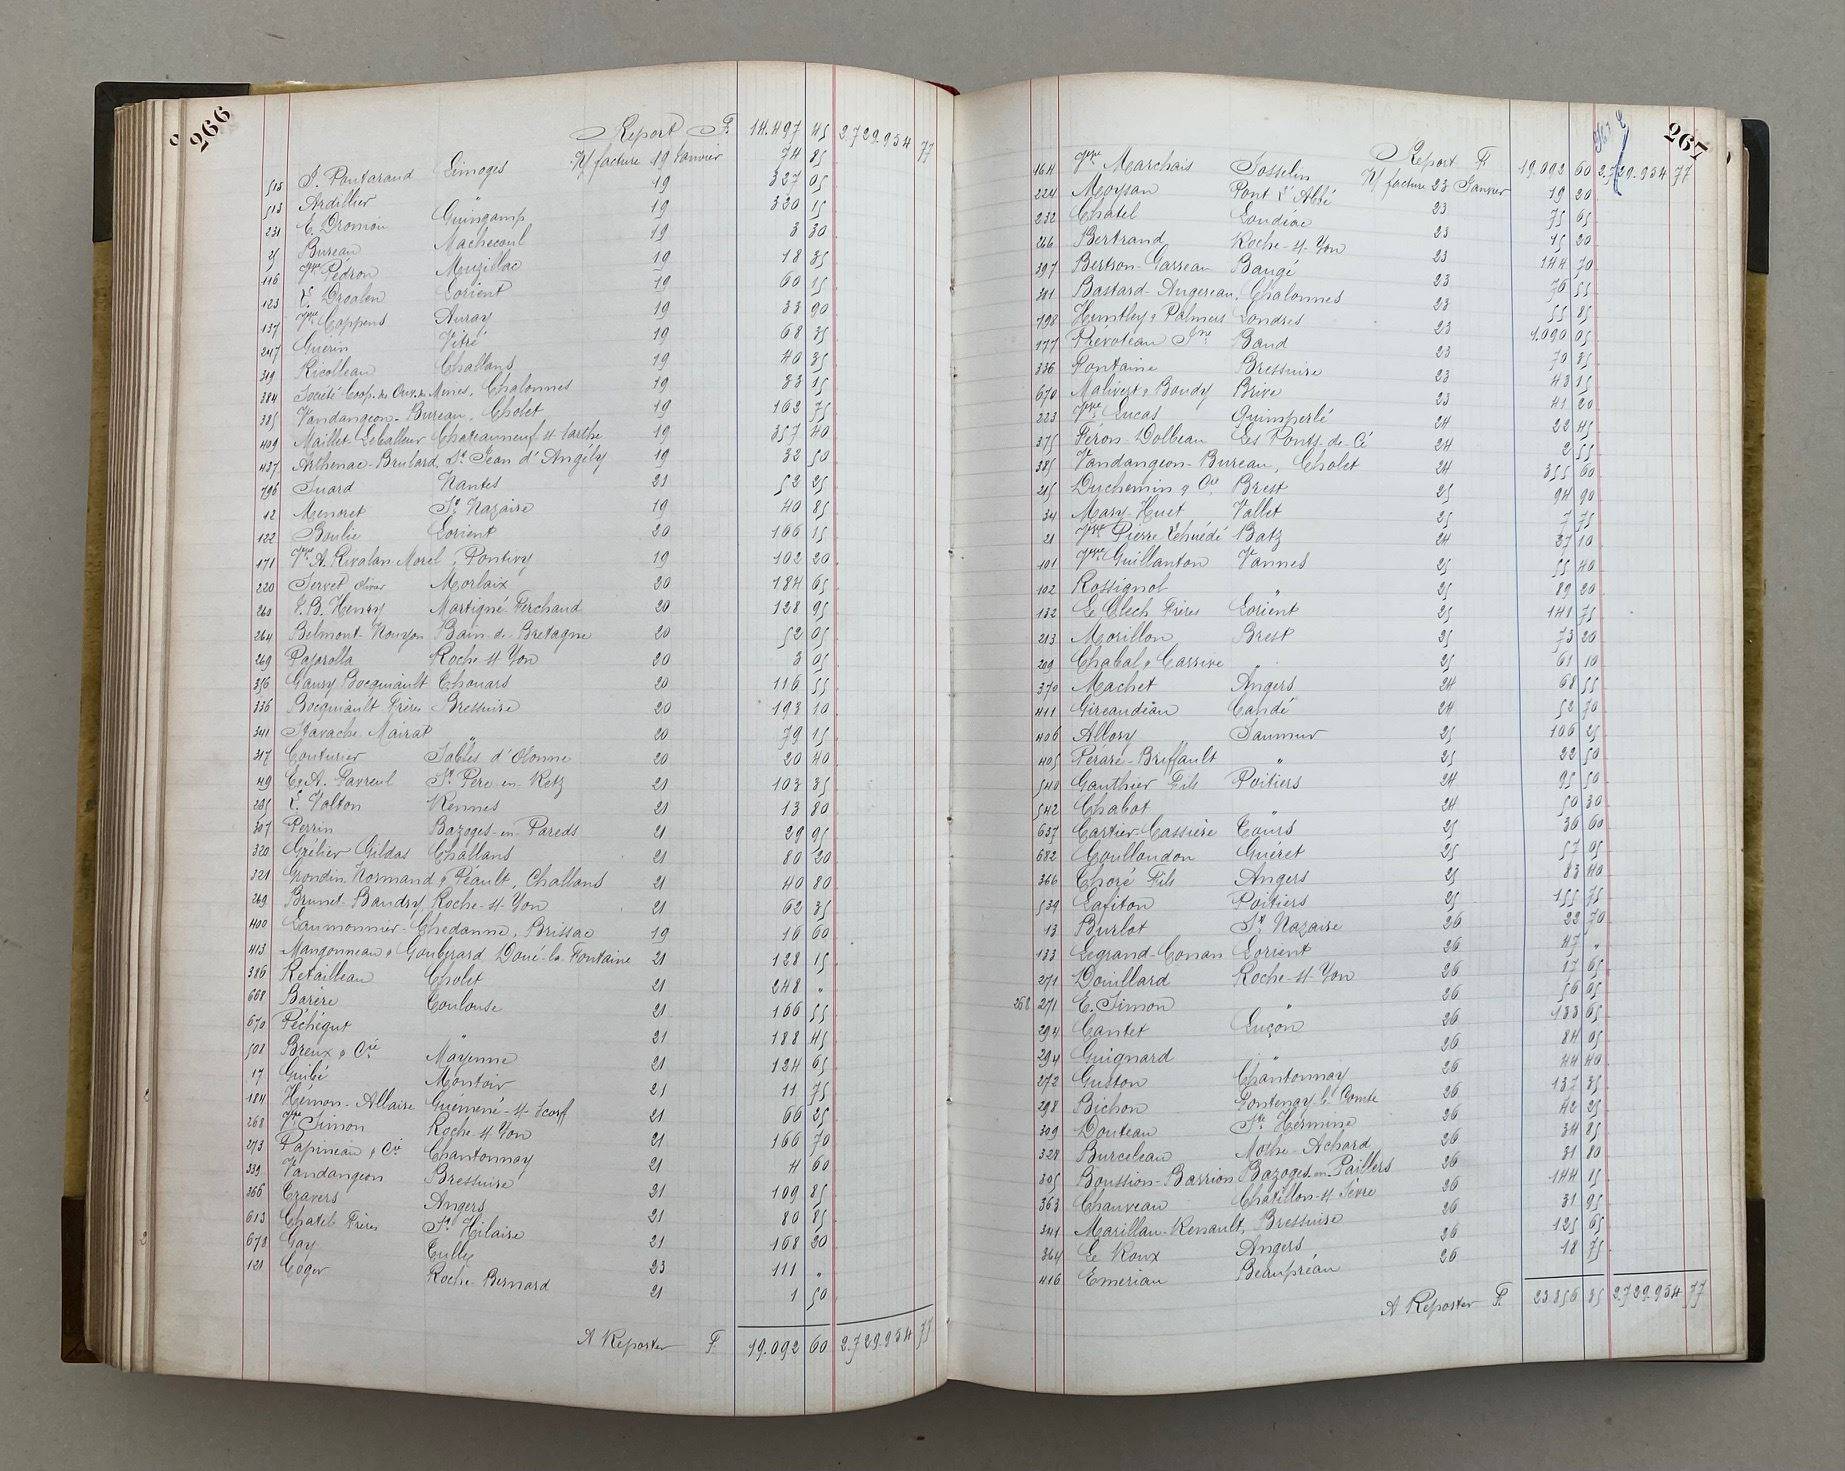 266
Report F. 14.497 45 2.729.954 77
515 P. Pontaraud Limoges N/ facture 19 Janvier 74 85
513 Ardillier " 19 327 05
231 E. Dromiou Guingamp 19 320 15
25 Bureau Machecoul 19 3 30
116 Vve Pédron Muzillac 19 18 35
123 L. Droalen Lorient 19 60 15
137 Vve Coppens Auray 19 33 90
247 Guérin Vitré 19 68 35
319 Ricolleau Challans 19 40 35
384 Société Coop. des Ouv. des Mines, Chalonnes 19 83 15
385 Vandangeon-Bureau, Cholet 19 162 75
409 Maillet Leballeur Chateauneuf s/ Sarthe 19 357 40
437 Arthenac-Brulard, St Jean d'Angély 19 32 50
796 Suard Nantes 21 52 25
12 Menoret St Nazaire 19 40 85
122 Boulié Lorient 20 166 15
171 Vve A. Rivalan-Morel, Pontivy 19 102 20
220 Servet Olivier Morlaix 20 184 65
260 J. B. Henry Martigné-Ferchaud 20 128 95
264 Belmont-Nouyon Bain-de-Bretagne 20 52 05
269 Pajarolla Roche s/ Yon 20 3 05
356 Gaury Bocquiault Thouars 20 116 55
336 Bocquiault Frères Bressuire 20 193 10
341 Havache Mairat " 20 79 15
317 Couturier Sables d'Olonne 20 20 40
49 E. A. Favreul St Père en Retz 21 103 35
235 L. Valton Rennes 21 13 80
307 Perrin Bazoges-en-Pareds 21 29 95
320 Grélier Gildas Challans 21 80 20
321 Grondin Normand & Péault, Challans 21 40 80
269 Brunet-Baudry, Roche-s/-Yon 21 62 35
400 Laumonnier-Chedanne, Brissac 19 16 60
413 Mangonneau & Goubgrard Doué-la-Fontaine 21 128 15
386 Retailleau Cholet 21 248 "
668 Barère Toulouse 21 166 55
670 Péchégut " 21 188 45
508 Breux & Cie Mayenne 21 124 65
17 Guibé Montoir 21 11 75
184 Hémon-Allaire Guémené-s/-Scorf 21 66 25
268 Vve Simon Roche s/ Yon 21 166 70
273 Papineau & Cie Chantonnay 21 4 60
339 Vandangeon Bressuire 21 109 85
366 Travers Angers 21 80 85
613 Chatel Frères St Hilaire 21 168 20
678 Gay Tulle 23 111 "
121 Cóger Roche-Bernard 21 1 50
A Reporter F. 19.092 60 2.729.954 77
267
Report F. 19.092 60 2.729.954 77
164 Vve Marchais Josselin N/ facture 23 Janvier 19 20
224 Moysan Pont L'Abbé 23 75 65
232 Chatel Loudéac 23 45 20
266 Bertrand Roche-s/-Yon 23 144 70
397 Bertron-Garreau Baugé 23 76 55
381 Bastard-Augereau, Chalonnes 23 55 85
798 Huntley & Palmers Londres 23 1.090 05
177 Prévoteau Jne Baud 23 70 35
336 Fontaine Bressuire 23 43 15
670 Malivert & Boudy Brive 23 41 20
223 Vve Lucas Quimperlé 24 22 45
375 Féron-Dolbeau Les Ponts-de-Cé 24 2 55
385 Vandangeon-Bureau, Cholet 24 355 60
215 Duchemin & Cie Brest 25 94 90
34 Mary Huet Vallet 25 7 75
21 Vve Pierre Lehuédé Batz 24 37 10
101 Vve Guillanton Vannes 25 55 40
102 Rossignol " 25 89 20
132 Le Clech Frères Lorient 25 141 75
213 Morillon Brest 25 73 20
209 Chabal & Carrive " 25 61 10
370 Machet Angers 24 68 55
411 Gireaudeau Candé 24 52 70
406 Allory Saumur 25 106 25
405 Péraré-Briffault " 25 22 50
540 Gauthier Fils Poitiers 24 95 50
542 Chabot " 24 50 30
637 Cartier-Cassière Tours 25 36 60
682 Coullaudon Guéret 25 57 05
366 Choré Fils Angers 25 83 40
539 Lafiton Poitiers 25 155 75
13 Burlot St Nazaire 26 22 70
133 Legrand-Conan Lorient 26 47 "
271 Douillard Roche-s/-Yon 26 17 65
268 271 E. Simon " 26 56 05
294 Cantet Luçon 26 133 65
294 Guignard " 26 84 05
272 Guston Chantonnay 26 44 40
298 Bichon Fontenay le Comte 26 137 35
309 Douteau Ste Hermine 26 42 25
328 Burceleau Mothe-Achard 26 34 85
305 Boussion-Barrion Bazoges-en-Paillers 26 31 80
363 Chauveau Chatillon-s/-Sèvre 26 144 15
341 Marillau-Renault, Bressuire 26 31 95
364 Le Roux Angers 26 125 65
416 Emeriau Beaupréau 26 18 75
A Reporter F. 23.356 35 2.729.954 77